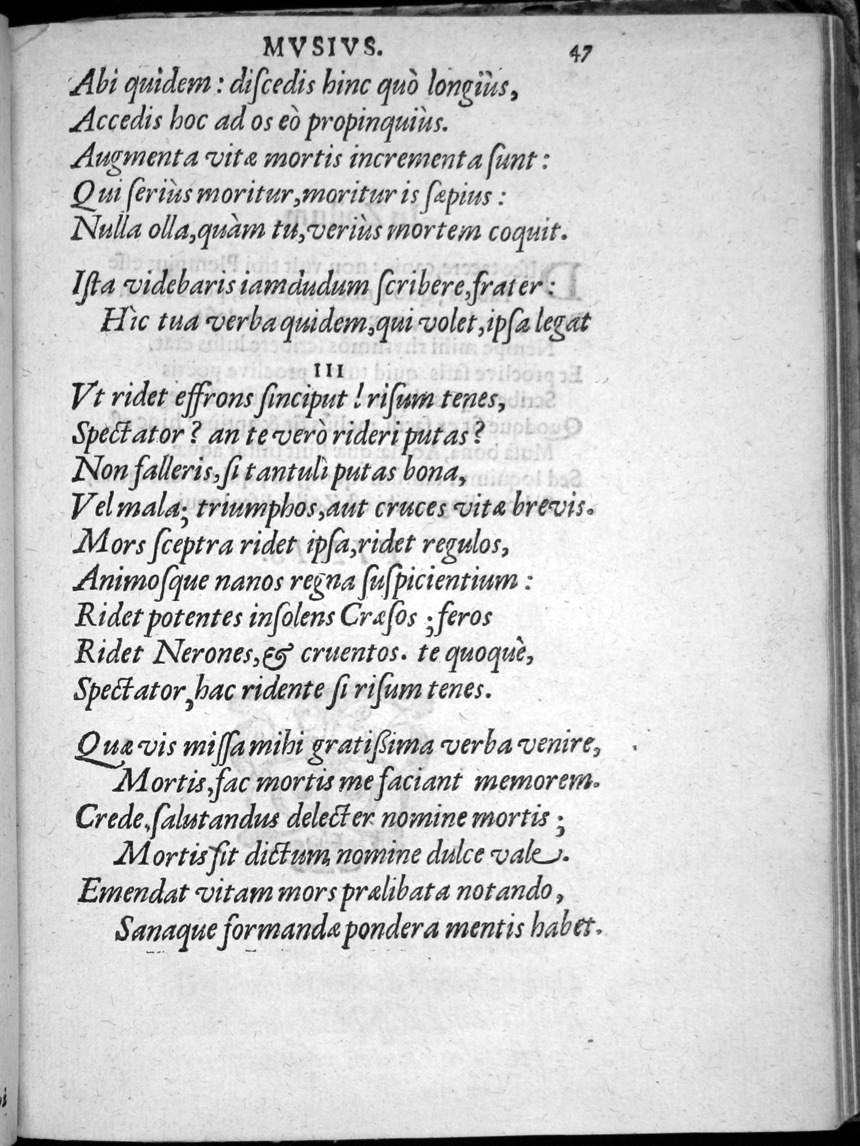 MVSIVS. 47
Abi quidem: diſcedis hinc quò longiùs,
Accedis hoc ad os eò propinquiùs.
Augmenta vitæ mortis incrementa ſunt:
Qui ſeriùs moritur, moritur is ſæpius:
Nulla olla, quàm tu, veriùs mortem coquit.
Iſta videbaris iamdudum ſcribere, frater:
Hìc tua verba quidem, qui volet, ipſa legat
III
Vt ridet effrons ſinciput! riſum tenes,
Spectator? an te vero rideri putas?
Non falleris, ſi tantuli putas bona,
Vel mala; triumphos, aut cruces vitæ brevis.
Mors ſceptra ridet ipſa, ridet regulos,
Animoſque nanos regna ſuſpicientium:
Ridet potentes inſolens Cræſos; feros
Ridet Nerones, & cruentos. te quoquè,
Spectator, hac ridente ſi riſum tenes.
Quæ vis miſſa mihi gratißima verba venire,
Mortis, fac mortis me faciant memorem.
Crede, ſalutandus delecter nomine mortis;
Mortis ſit dictum nomine dulce vale.
Emendat vitam mors prælibata notando,
Sanaque formandæ pondera mentis habet.